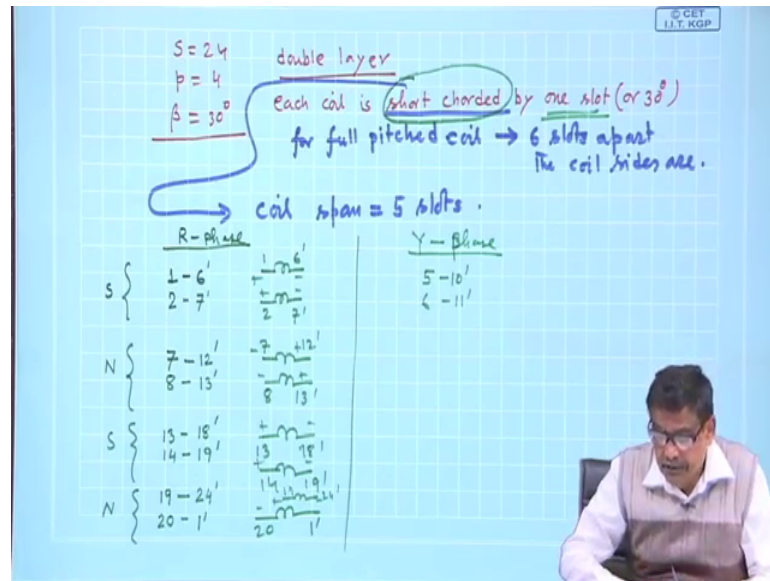 © CET
I.I.T. KGP
S = 24
p = 4
β = 30°
double layer
each coil is short chorded by one slot (or 30°)
for full pitched coil → 6 slots apart
The coil sides are.
coil span = 5 slots.
R-phase
S { 1 - 6' 1 6' + -
2 - 7' + - 2 7'
N { 7 - 12' -7 +12'
8 - 13' - + 8 13'
S { 13 - 18' + - 13 18'
14 - 19' + - 14 19'
N { 19 - 24' 19 24'
20 - 1' - 20 1'
Y - phase
5 - 10'
6 - 11'